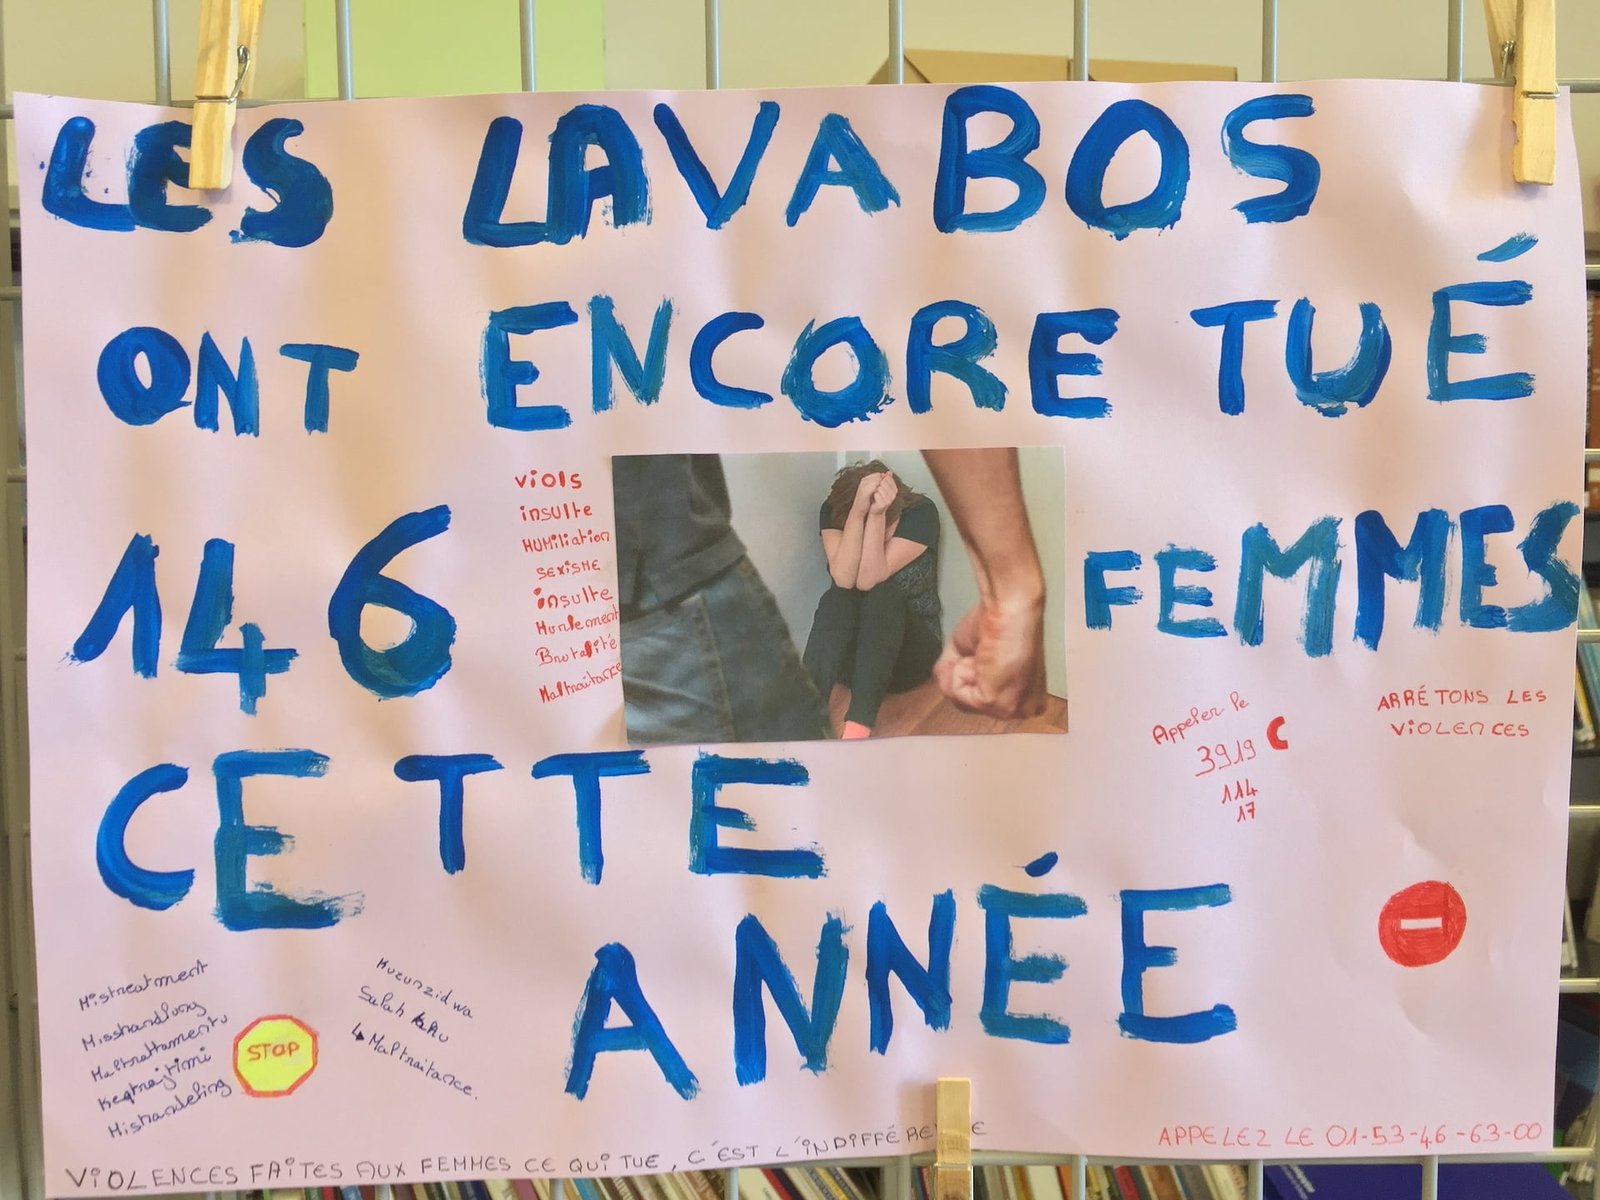 LES LAVABOS
ONT ENCORE TUÉ
146 FEMMES
CETTE
ANNÉE
viols
insulte
HUMiliation
SEXISME
insulte
Hurlement
Brutalité
Maltraitance
Appeler le
3919
114
17
ARRÉTONS LES
ViOLENCES
Mistreatment
Misshandlung
Maltrattamento
Keqtrajtimi
Mishandeling
STOP
Kuzunzidwa
Salah laku
↳ Maltraitance.
APPELEZ LE 01-53-46-63-00
ViOLENCES FAiTES AUX FEMMES CE QUi TUE, C'EST L'iNDiFFÉRENCE